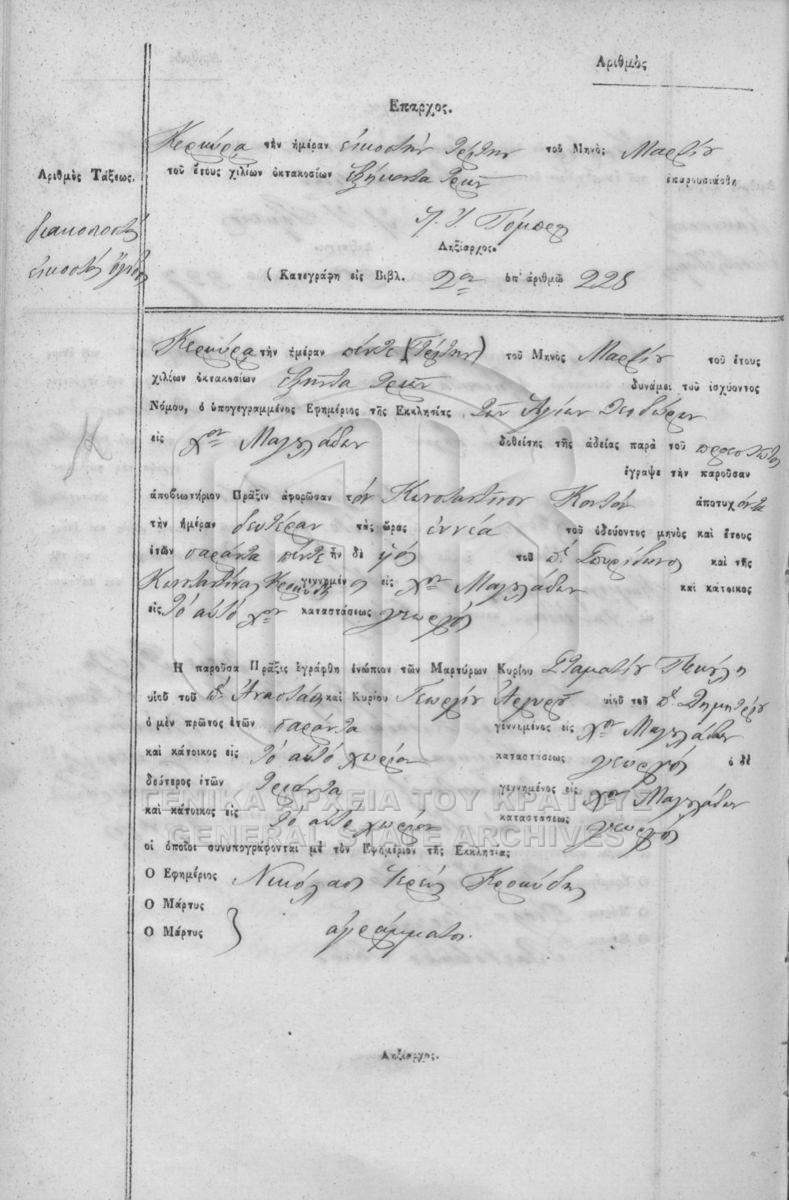 Αριθμὸς
Επαρχος.
Κερκύρα τὴν ἡμέραν εἰκοστὴν τρίτην τοῦ Μηνὸς Μαρτίου
Αριθμὸς Τάξεως.
τοῦ ἔτους χιλίων ὀκτακοσίων ἑξήκοντα τριῶν ἐπαρουσιάσθη
διακοσιοστή
εἰκοστή ὀγδόη
Ληξίαρχος.
( Κατεγράφη εἰς Βιβλ. 2ον ὑπ' ἀριθμῷ 228
Κερκύρα τὴν ἡμέραν πέντε (Τρίτην) τοῦ Μηνὸς Μαρτίου τοῦ ἔτους
χιλίων ὀκτακοσίων ἑξῆντα τριῶν δυνάμει τοῦ ἰσχύοντος
Νόμου, ὁ ὑπογεγραμμένος Ἐφημέριος τῆς Εκκλησίας τῶν Ἁγίων Θεοδώρων
εἰς χον Μαγουλάδων δοθείσης τῆς ἀδείας παρὰ τοῦ προεστῶτος
ἔγραψε τὴν παροῦσαν
ἀποβιωτήριον Πρᾶξιν ἀφορῶσαν τὸν Κωνσταντῖνον Κοντὸν ἀποτυχόντα
τὴν ἡμέραν δευτέραν τὰς ὥρας ἐννέα τοῦ ὁδεύοντος μηνὸς καὶ ἔτους
ἐτῶν σαράντα πέντε ἦν δὲ υἱὸς τοῦ πτ Σπυρίδωνος καὶ τῆς
Κωνσταντίνας γεγνημένος εἰς χον Μαγουλάδων καὶ κάτοικος
εἰς τὸ αὐτὸ χον καταστάσεως γεωργός
Η παροῦσα Πρᾶξις ἐγράφθη ἐνώπιον τῶν Μαρτύρων Κυρίου Σταματίου
υἱοῦ τοῦ πτ Ἀναστάση καὶ Κυρίου Γεωργίου Ἀργυροῦ υἱοῦ τοῦ πτ Δημητρίου
ὁ μὲν πρῶτος ἐτῶν σαράντα γεννημένος εἰς χον Μαγουλάδων
καὶ κάτοικος εἰς τὸ αὐτὸ χωρίον καταστάσεως γεωργός ὁ δὲ
δεύτερος ἐτῶν τριάντα γεννημένος εἰς χον Μαγουλάδων
καὶ κάτοικος εἰς τὸ αὐτὸ χωρίον καταστάσεως γεωργός
ΓΕΝΙΚΑ ΑΡΧΕΙΑ ΤΟΥ ΚΡΑΤΟΥΣ
GENERAL STATE ARCHIVES
οἱ ὁποῖοι συνυπογράφονται μὲ τὸν Εφημέριον τῆς Εκκλησίας
Ο Εφημέριος Νικόλαος Ἱερεὺς Κερκύδης
Ο Μάρτυς
Ο Μάρτυς } ἀγράμματοι.
Ληξίαρχος.